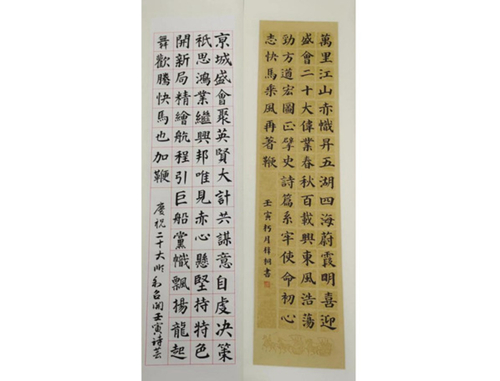 萬里江山赤幟昇五湖四海蔚霞明喜迎
盛會二十大偉業春秋百載興東風浩蕩
勁方道宏圖正擘史詩篇系牢使命初心
志快馬乘風再著鞭
壬寅月書
京城盛會聚英賢大計共謀意自虔决策
祇思鴻業繼興邦唯見赤心懸堅持特色
開新局精繪航程引巨船黨幟飄揚龍起
舞歡騰快馬也加鞭
慶祝二十大召開壬寅詩芸